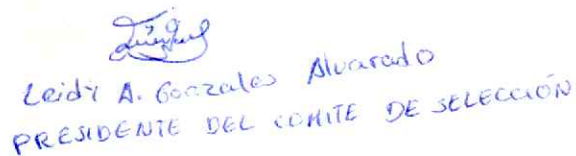 Leidi A. Gonzales Alvarado
PRESIDENTE DEL COMITE DE SELECCIÓN